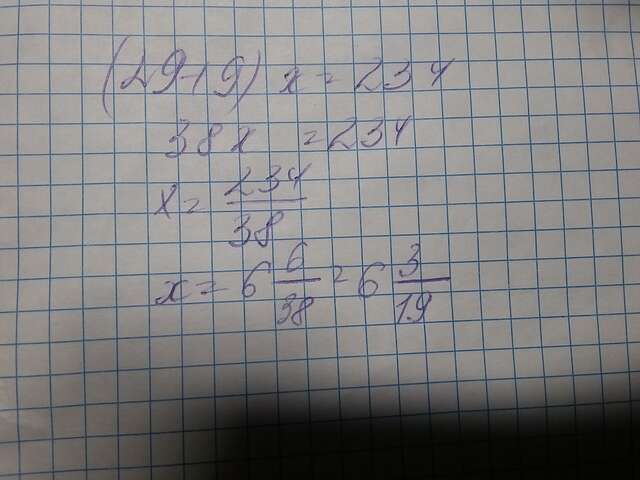 (29+9) x = 234
38x = 234
x = 234/38
x = 6 6/38 = 6 3/19